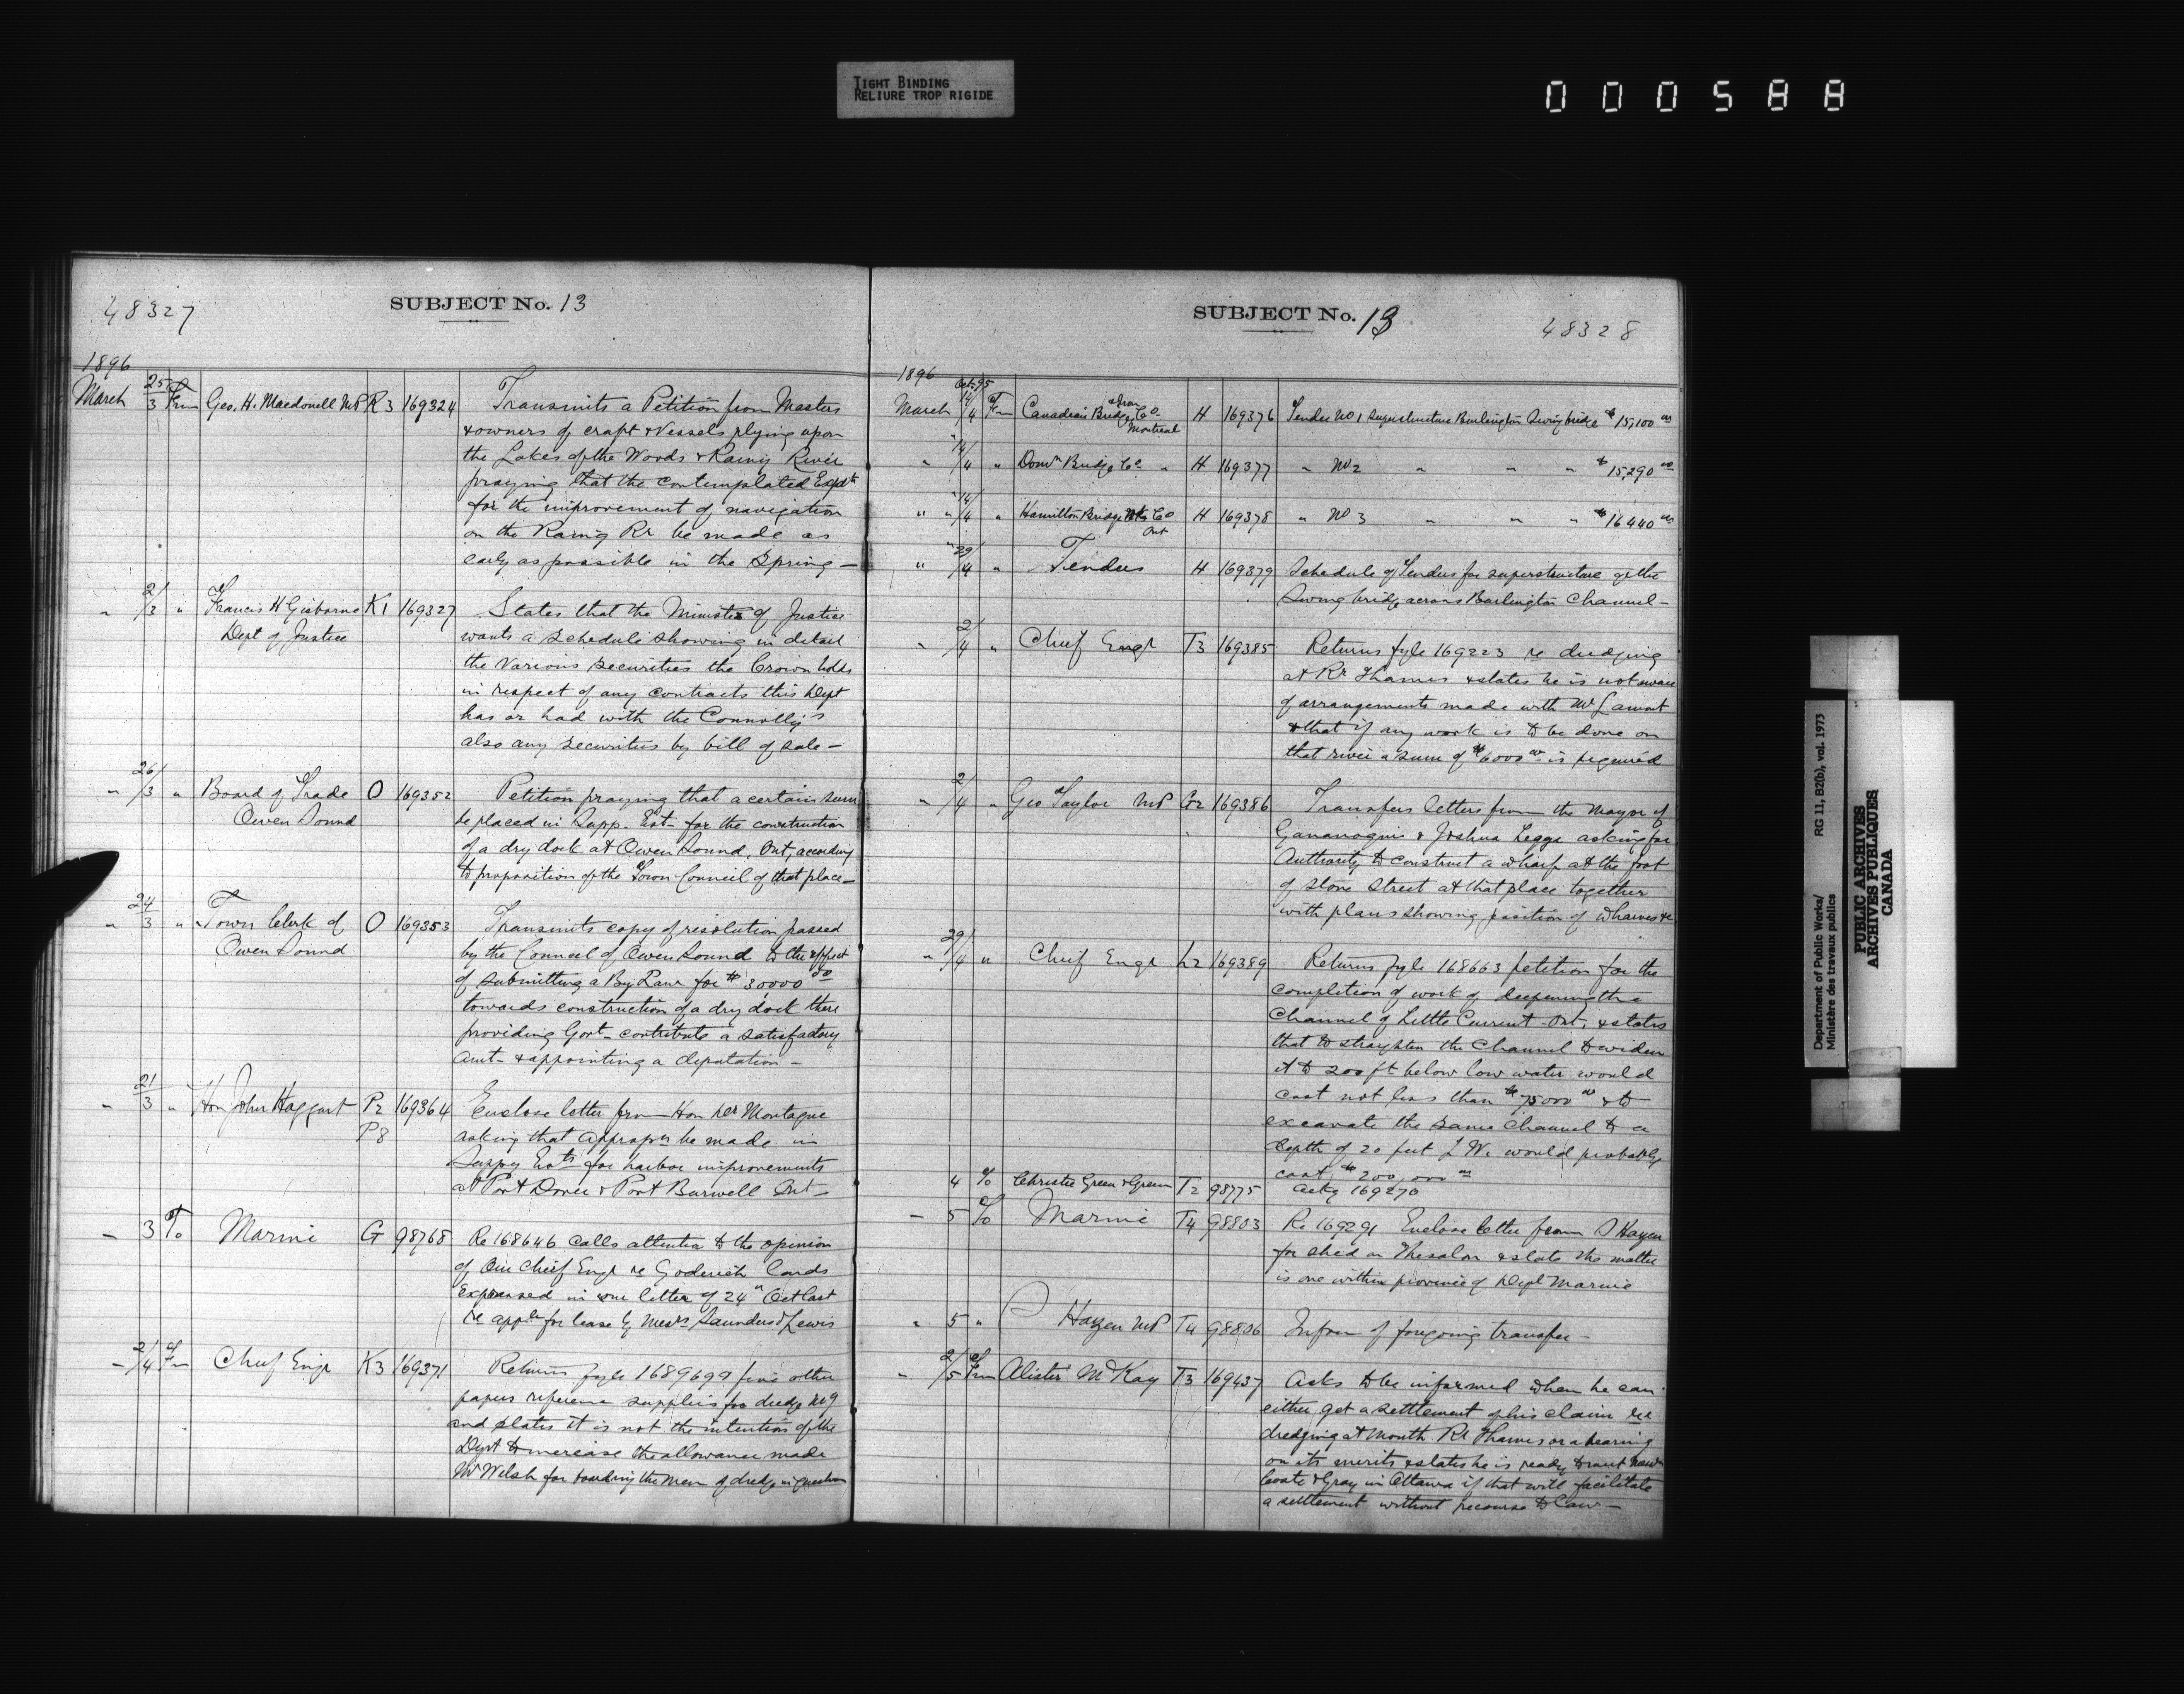 TIGHT BINDING
RELIURE TROP RIGIDE
000588
48327
SUBJECT No. 13
1896
March 25/3 Frm Geo. H. Macdowell MP R3 169324 Transmits a Petition from Masters
& owners of craft & Vessels plying upon
the Lakes of the Woods & Rainy River
praying that the contemplated Expdte
for the improvement of navigation
on the Rainy Rr be made as
early as possible in the Spring —
" 2/3 " Francis H Gisborne K1 169327 States that the Minister of Justice
Dept of Justice wants a schedule showing in detail
the various securities the Crown holds
in respect of any contracts this Dept
has or had with the Connolly's
also any securities by bill of sale —
" 26/3 " Board of Trade O 169352 Petition praying that a certain sum
Owen Sound be placed in Supp. Est- for the construction
of a dry dock at Owen Sound, Ont, according
to proposition of the Town Council of that place —
" 24/3 " Town Clerk of O 169353 Transmits copy of resolution passed
Owen Sound by the Council of Owen Sound to the effect
of submitting a By Law for $30000 00
towards construction of a dry dock there
providing Govt- contribute a satisfactory
amt- & appointing a deputation —
" 21/3 " Hon John Haggart P2 169364 Enclose letter from Hon Dr Montague
P8 asking that appropn be made in
Suppy Ests for harbor improvements
at Port Dover & Port Burwell Ont —
— 3 To Marine G 98768 Re 168646 calls attention to the opinion
of Our Chief Engr re Goderich lands
expressed in our letter of 24th Oct last
re appln for lease by Messrs Saunders & Lewis
— 2/4 Frm Chief Engr K3 169371 Returns fyle 1689699 five other
papers reference supplies for dredge No 9
and states it is not the intention of the
Dept to increase the allowance made
Mr Welsh for boarding the men of dredge in question
SUBJECT No. 13
48328
1896
Oct. 95
March 14/4 Frm Canadian Bridge & Iron Co H 169376 Tender No 1 Superstructure Burlington Swing bridge $15,100 00
Montreal
" 14/4 " Domn Bridge Co " H 169377 " No 2 " " " $15,290 00
" " 14/4 " Hamilton Bridge Wks Co H 169378 " No 3 " " " $16440 00
Ont
" 29/4 " Tenders H 169379 Schedule of Tenders for superstructure of the
Swing bridge across Burlington Channel —
" 2/4 " Chief Engr T3 169385 Returns fyle 169223 re dredging
at Rr Thames & states he is not aware
of arrangements made with Mr Lamont
& that if any work is to be done on
that river a sum of $6000 00 is required
" 2/4 " Geo Taylor MP G2 169386 Transfers letters from the Mayor of
Gananoque & Joshua Legge asking for
Authority to construct a wharf at the foot
of Stone Street at that place together
with plans showing position of wharves &c
" 29/4 " Chief Engr L2 169389 Returns fyle 168663 petition for the
completion of work of deepening the
Channel of Little Current Ont. & states
that to straighten the Channel & widen
it to 200 ft below low water would
cost not less than $75000 00 & to
excavate the same Channel to a
depth of 20 feet L W. would probably
cost $200,000 00
4 To Christie Green & Green T2 98775 Ackg 169270
— 5 To Marine T4 98803 Re 169291 Enclose letter from Hazen
for shed on Thesalon & state the matter
is one within province of Dept Marine
" 5 " Hazen MP T4 98806 Inform of foregoing transfer —
" 2/5 Frm Alister McKay T3 169437 Asks to be informed when he can
either get a settlement of his claim re
dredging at mouth Rr Thames or a hearing
on its merits & states he is ready to meet
Coste & Gray in Ottawa if that will facilitate
a settlement without recourse to Law —
Department of Public Works/
Ministère des travaux publics
RG 11, B2(b), vol. 1973
PUBLIC ARCHIVES
ARCHIVES PUBLIQUES
CANADA